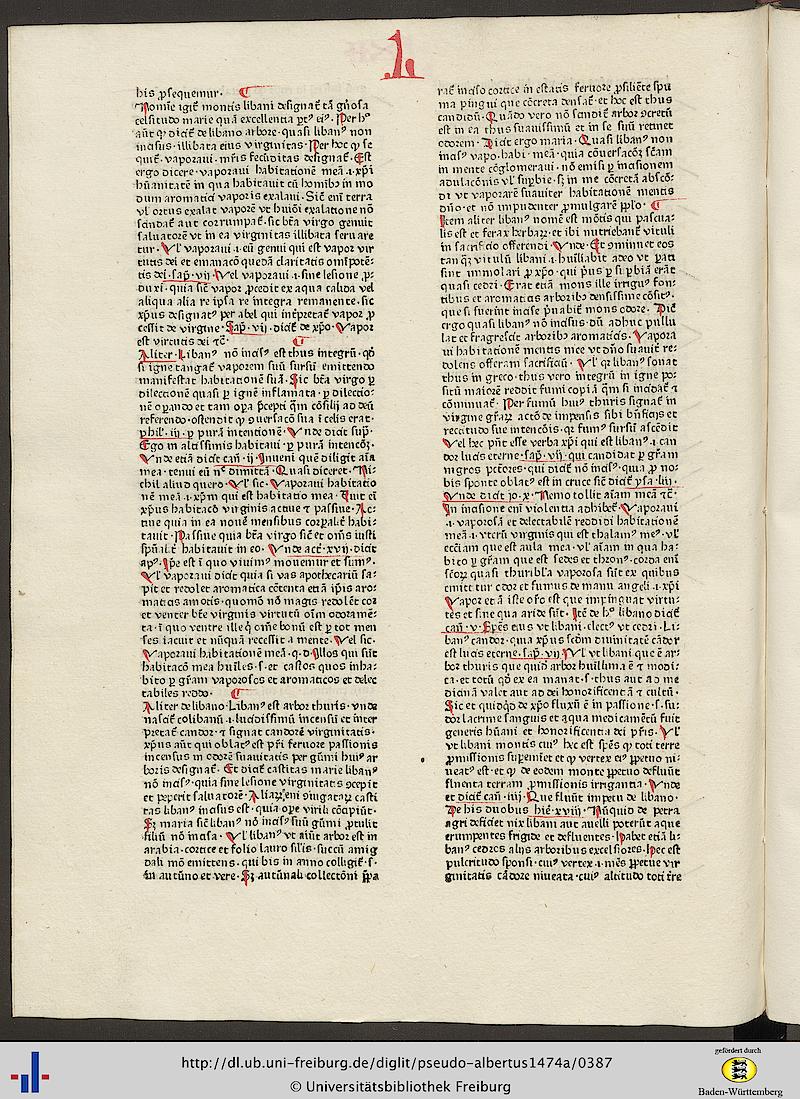 L
his ꝓsequemur.
Nomīe igit̄ montis libani designat̄ tā gl̄iosa
celsitudo marie quā excellentia
aūt dicit̄ de libano arbore. quasi liban⁹ non
incisus. illibata eius virginitas. Per hoc se
quit̄. vaporaui. mr̄is fecūditas designat̄. Est
ergo dicere. vaporaui habitationē meā .i. xp̄i
hūanitatē in qua habitauit cū homībꝫ in mo
dum aromatici vaporis exalani. Sic̄ eni terra
vl ortus exalat vaporē
scindat̄ aut corrumpat̄. sic bt̄a virgo genuit
saluatorē vt in ea virginitas illibata seruare
tur. Vl vaporaui .i. eū genui qui est vapor vir
tutis dei et emanacō quedā claritatis omīpotē
tis dei. sap̄. vij. Vel vaporaui .i. sine lesione ꝓ
duxi. quia sic̄ vapor ꝓcedit ex aqua calida vel
aliqua alia re ipsa re integra remanente. sic
xp̄us designat̄ per abel qui intp̄retat̄ vapor ꝓ
cessit de virgine. Sap̄. vij. dicit̄ de xp̄o. Vapor
est virtutis dei ⁊c̄
Aliter. Liban⁹ nō incis⁹ est thus integrū. qd̄
si igne tangat̄ vaporem suū sursū emittendo
manifestat habitationē suā. Sic bt̄a virgo ꝑ
dilectionē quasi ꝑ ignē inflamata. ꝑ dilectio
nē oꝑando et tam oꝑa p̄cepti qm̄ cōsilij ad deū
referendo. ostendit ꝙ ꝯuersacō sua ī celis erat.
phil̄. iij. ꝑ purā intentionē. Vnde dicit sup̄.
Ego in altissimis habitaui. ꝑ purā intencōꝫ.
Vnde etiā dicit can̄. ij. Inueni quē diligit aīa
mea. tenui eū n̄ dimittā. Quasi diceret. Ni
chil aliud quero. Vl sic. Vaporaui habitatio
nē meā .i. xp̄m qui est habitatio mea. Fuit eī
xp̄us habitacō virginis actiue ⁊ passiue. Ac
tiue quia in ea nouē mensibus corpalit̄ habi
tauit. Passiue quia bt̄a virgo sic̄ et om̄s iusti
spūalit̄ habitauit in eo. Vnde act̄. xvij. dicit
ap⁹. Ip̄e est ī quo viuim⁹ mouemur et sum⁹.
Vl vaporaui dicit quia si vas apothecariū sa
pit et redolet aromatica cōtenta etiā ip̄is aro
maticis amotis. quomō nō magis redolēt cor
et venter bt̄e virginis virtutū om̄ odoramē
ta. ī quo ventre ille omē bonū est ꝑ tot men
ses iacuit et nūquā recessit a mente. Vel sic.
Vaporaui habitationē meā. q. d. Illos qui sūt
habitacō mea huīles. s. et castos quos inha
bito ꝑ gr̄am vaporosos et aromaticos et delec
tabiles reddo.
Aliter de libano. Liban⁹ est arbor thuris. vnde
nascit̄ colibanū .i. lucidissimū incensū et inter
pretat̄ candor. ⁊ signat candorē virginitatis.
xp̄us aūt qui oblat⁹ est pr̄i feruore passionis
incensus in odorē suauitatis per gūmi hui⁹ ar
boris designat̄. Et dicit̄ castitas marie liban⁹
nō incis⁹. quia sine lesione virginitatis ꝯcepit
et peperit saluatorē. Aliarꝫ eni ꝯiugatarꝫ casti
tas liban⁹ incisus est. quia ope virili cōcipiūt.
Sꝫ maria sic̄ liban⁹ nō incis⁹ suū gūmi ꝓtulit
filiū nō incisa. Vl liban⁹ vt aiūt arbor est in
arabia. cortice et folio lauro sil̄is. succū amig
dali mō emittens. qui bis in anno colligit̄. s.
in autūno et vere. Sꝫ autūnali collectōni
rat̄ inciso cortice in estatis feruore ꝓsiliēte spu
ma pingui que cōcreta densat̄. et hoc est thus
candidū. Quādo vero nō scindit̄ arbor ꝯcretū
est in ea thus suauissimū et in se suū retinet
odorem. Dicit ergo maria. Quasi liban⁹ non
incis⁹ vapo. habi. meā. quia cōuersacōꝫ sc̄am
in mente cōglomeraui. nō emisi ꝑ incisionem
adulacōnis vl sup̄bie. sꝫ in me cōcretā abscō
di vt vaporarē suauiter habitationē mentis
dn̄o. et nō impudenter ꝓmulgarē pplo.
Item aliter liban⁹ nomē est mōtis qui pascua
lis est et ferax herbarꝫ. et ibi nutriebant̄ vituli
in sacrificio offerendi. Vnde. Et ꝯminuet eos
tanqꝫ vitulū libani .i. huīliabit adeo vt pati
sint immolari ꝓ xp̄o. qui p̄us ꝑ supbiā erāt
quasi cedri. Erat etiā mons ille irrigu⁹ fon
tibus et aromaticis arboribꝫ densissime cōsit⁹.
que si fuerint incise p̄uabit̄ mons odore. Dic̄
ergo quasi liban⁹ nō incisus. dū adhuc pullu
lat et fragrescit arboribꝫ aromaticis. Vapora
ui habitationē mentis mee vt dn̄o suauit̄ re
dolens offeram sacrificiū. Vl qr liban⁹ sonat
thus in greco. thus vero integrū in igne po
sitū maiorē reddit fumi copiā qm̄ si incidat̄ ⁊
cōminuat̄. Per fumū hui⁹ thuris signat̄ in
virgine gr̄arꝫ actō de impensis sibi bn̄ficijs et
rectitudo sue intencōis. qr fum⁹ sursū ascēdit
Vel hec pn̄t esse verba xp̄i qui est liban⁹ .i. can
dor lucis eterne. sap̄. vij. qui candidat ꝑ gr̄am
nigros pctores. qui dicit̄ nō incis⁹. quia ꝓ no
bis sponte oblat⁹ est in cruce sic̄ dicit̄ ysa. liij.
Vnde dicit jo. x. Nemo tollit aīam meā ⁊c̄.
In incisione eni violentia adhibet̄. Vaporaui
.i. vaporosā et delectabilē reddidi habitationē
meā .i. vterū virginis qui est thalam⁹ me⁹. vl
ecc̄iam que est aula mea. vl aīam in qua ha
bito ꝑ gr̄am que est sedes et thron⁹. corda eni
sc̄orꝫ quasi thuribl̄a vaporosa sūt ex quibus
emittitur odor et fumus de manu angeli .i. xp̄i
Vapor et ā iste ofo est que impinguat virtu
tes et sine qua aride sūt. Itē de h⁹ libano dicit̄
can̄. v. Spēs eius vt libani. elect⁹ vt cedri. Li
ban⁹ candor. quia xp̄us scdm diuinitatē cādor
est lucis eterne. sap̄. vij. Vl vt libani que ē ar
bor thuris que quid arbor huīllima ē ⁊ modi
ca. et totū qd̄ ex ea manat. s. thus aut ad me
dicinā valet aut ad dei honorificentiā ⁊ cultū.
Sic et quidqd̄ de xp̄o fluxū ē in passione. s. su
dor lacrime sanguis et aqua medicamētū fuit
generis hūani et honorificentia dei pr̄is. Vl
vt libani montis cui⁹ hec est spēs ꝙ toti terre
ꝓmissionis supeminet et ꝙ vertex ei⁹ ꝑpetuo ni
ueat⁹ est. et ꝙ de eodem monte ꝑpetuo defluūt
fluenta terram ꝓmissionis irrigantia. Vnde
et dicit̄ can̄. iiij. Que fluūt impetu de libano.
De his duobus hie͞. xviij. Nūquid de petra
agri deficiet nix libani aut auelli poterūt aque
erumpentes frigide et defluentes. Habet etiā li
ban⁹ cedros alijs arboribus excelsiores. Hec est
pulcritudo sponsi. cui⁹ vertex .i. mēs ꝑpetue vir
ginitatis cādore niueata. cui⁹ altitudo toti tr̄e
http://dl.ub.uni-freiburg.de/diglit/pseudo-albertus1474a/0387
© Universitätsbibliothek Freiburg
gefördert durch
Baden-Württemberg